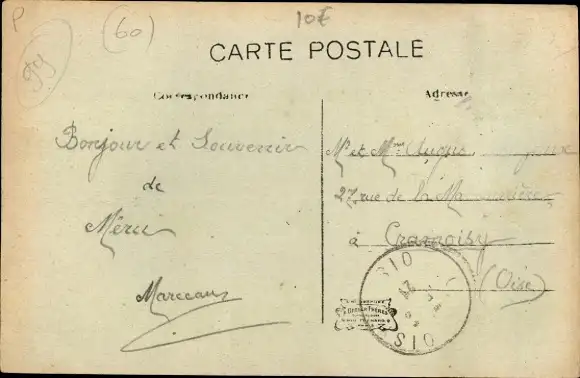 P
(60)
10€
99
CARTE POSTALE
Correspondance
Adresse
Bonjour et Souvenir
de
Méru
Marceau
Mr et Mme
27, rue de la
à Cramoisy
(Oise)